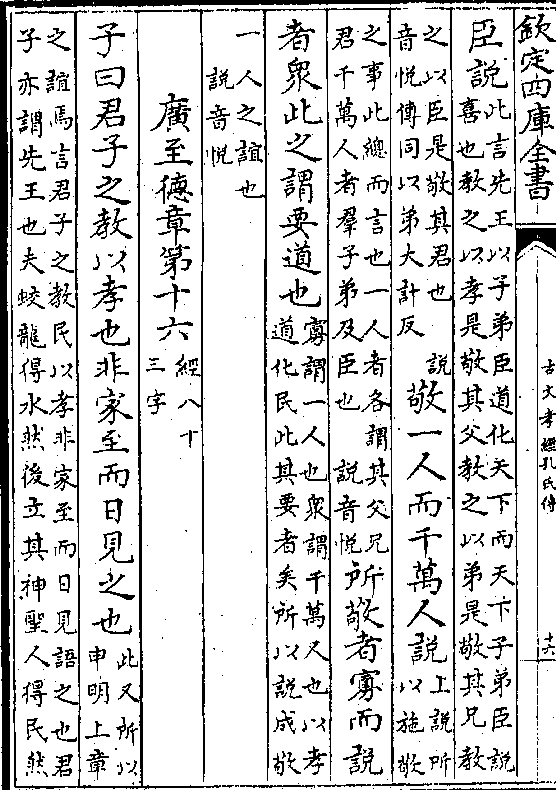 欽定四庫全書
古文孝經孔氏傳
十六
臣說
此言先王以子弟臣道化天下而天下子弟臣說
喜也教之以孝是敬其父教之以弟是敬其兄教
之以臣是敬其君也 說
音悅傳同以弟大計反
敬一人而千萬人說
上說所
以施敬
之事此總而言也一人者各謂其父兄
君千萬人者羣子弟及臣也 說音悅
所敬者寡而說
者衆此之謂要道也
寡謂一人也衆謂千萬人也以孝
道化民此其要者矣所以說成敬
一人之誼也
說音悅
廣至德章第十六
經八十
三字
子曰君子之教以孝也非家至而日見之也
此又所以
申明上章
之誼焉言君子之教民以孝非家至而日見語之也君
子亦謂先王也夫蛟龍得水然後立其神聖人得民然